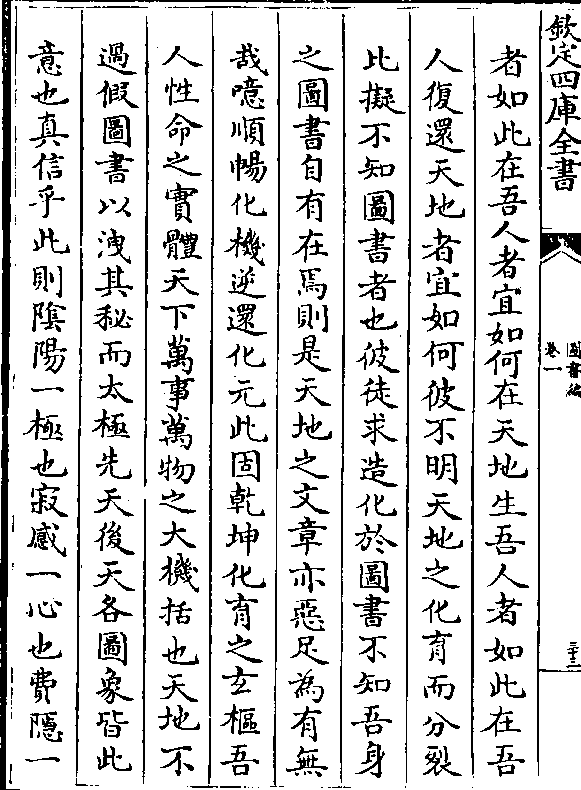 欽定四庫全書
圖書編
卷一
三十二
者如此在吾人者宜如何在天地生吾人者如此在吾
人復還天地者宜如何彼不明天地之化育而分裂
此擬不知圖書者也彼徒求造化於圖書不知吾身
之圖書自有在焉則是天地之文章亦惡足為有無
哉噫順暢化機逆還化元此固乾坤化育之玄樞吾
人性命之實體天下萬事萬物之大機括也天地不
過假圖書以洩其秘而太極先天後天各圖象皆此
意也真信乎此則陰陽一極也寂感一心也費隱一